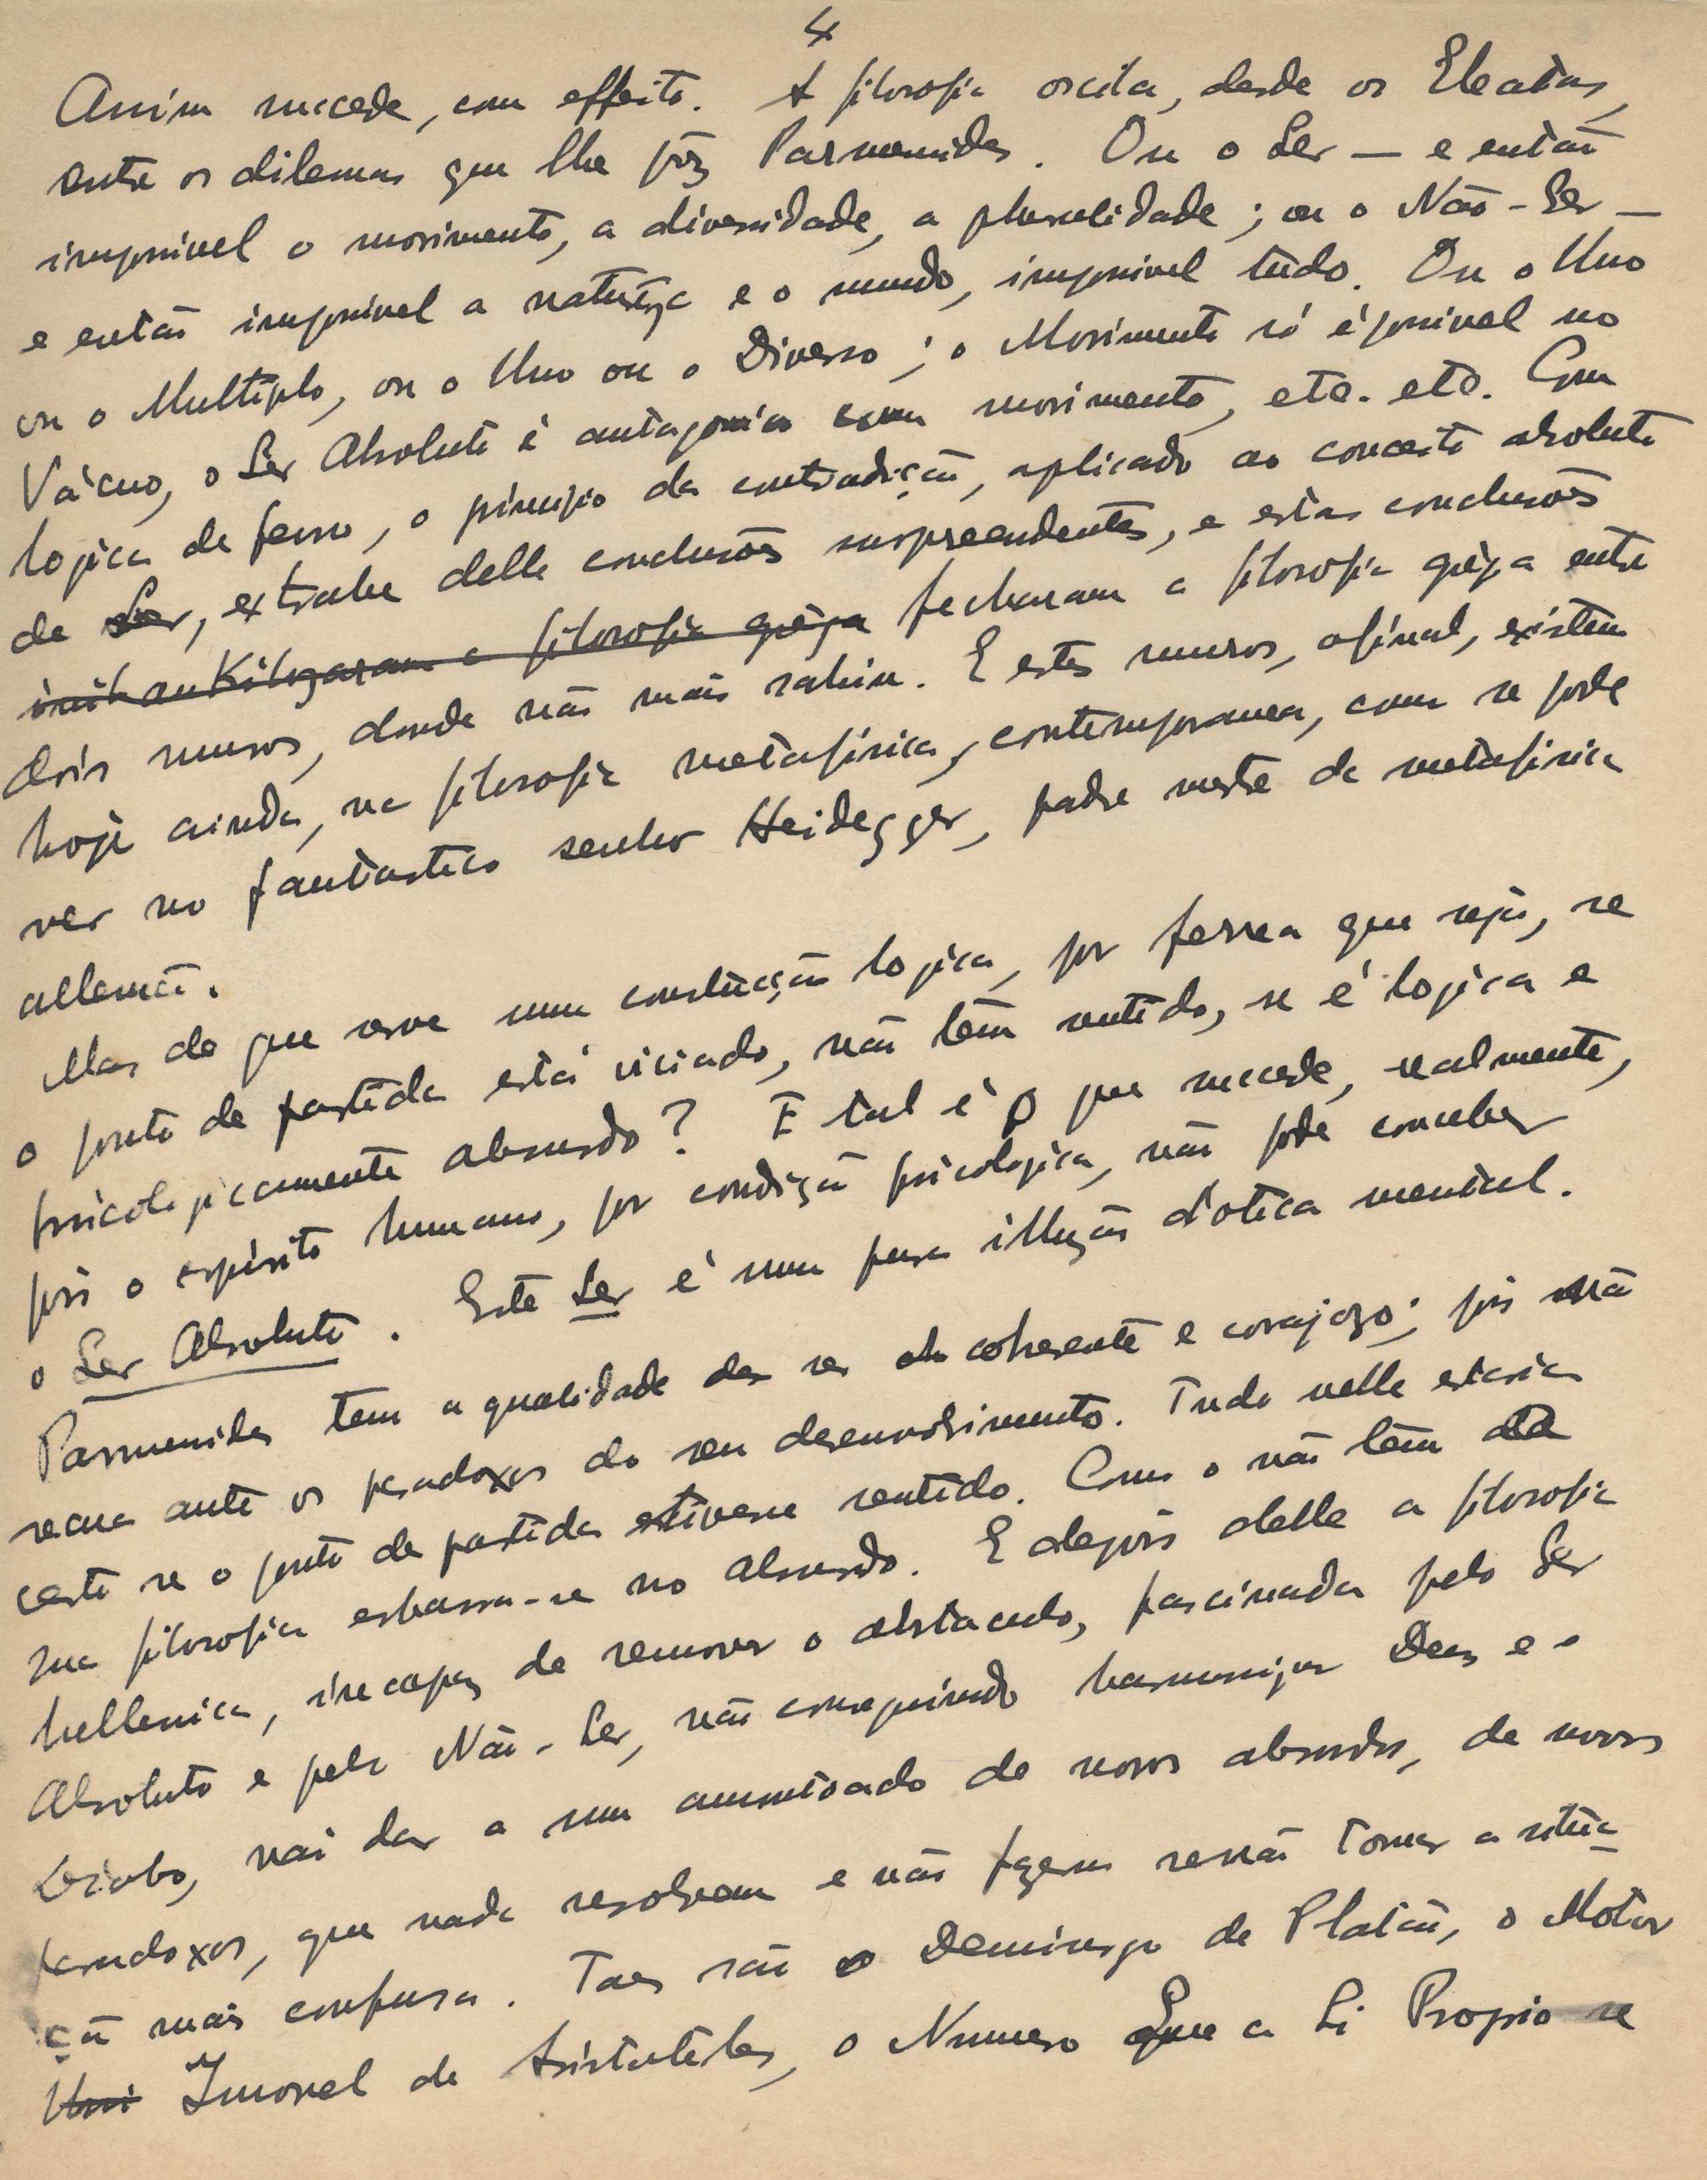 4
Assim succede, com effeito. A filosofia oscila, desde os Eleatas,
entre os dilemas que lhe pôz Parmenides. Ou o Ser — e então
impossivel o movimento, a diversidade, a pluralidade; ou o Não-Ser —
e então impossivel a natureza e o mundo, impossivel tudo. Ou o Uno
ou o Multiplo, ou o Uno ou o Diverso; o Movimento só é possivel no
Vácuo, o Ser Absoluto é antagonico com movimento, etc. etc. Com
logica de ferro, o principio da contradição, aplicado ao conceito absoluto
de Ser, extrahe delle conclusões surpreendentes, e estas conclusões
a filosofia grêga fecharam a filosofia grêga entre
dois muros, donde não mais sahiu. E estes muros, afinal, existem
hoje ainda, na filosofia metafisica, contemporanea, com se pode
ver no fantastico senhor Heidegger, padre mestre da metafisica
allemã.
Mas de que serve uma construcção logica, por ferrea que seja, se
o ponto de partida está viciado, não têm sentido, se é logica e
psicologicamente absurdo? E tal é o que succede, realmente,
pois o espirito humano, por condição psicologica, não pode conceber
o Ser Absoluto. Este Ser é uma pura illuzão d'otica mental.
Parmenides tem a qualidade de ser coherente e corajozo; pois não
recua ante os paradoxos do seu desenvolvimento. Tudo nelle estaria
certo se o ponto de partida estivesse sentido. Como o não têm
sua filosofia esbarra-se no absurdo. E depois delle a filosofia
hellenica, incapaz de remover o obstaculo, fascinada pelo Ser
Absoluto e pelo Não-Ser, não conseguindo harmonizar Deus e o
Diabo, vai dar a um amontoado de novos absurdos, de novos
paradoxos, que nada resolveram e não fazem senão tornar a situa-
ção mais confusa. Taes são o Demiurgo de Platão, o Motor
Uni Imovel de Aristoteles, o Numero Que a Si Proprio se